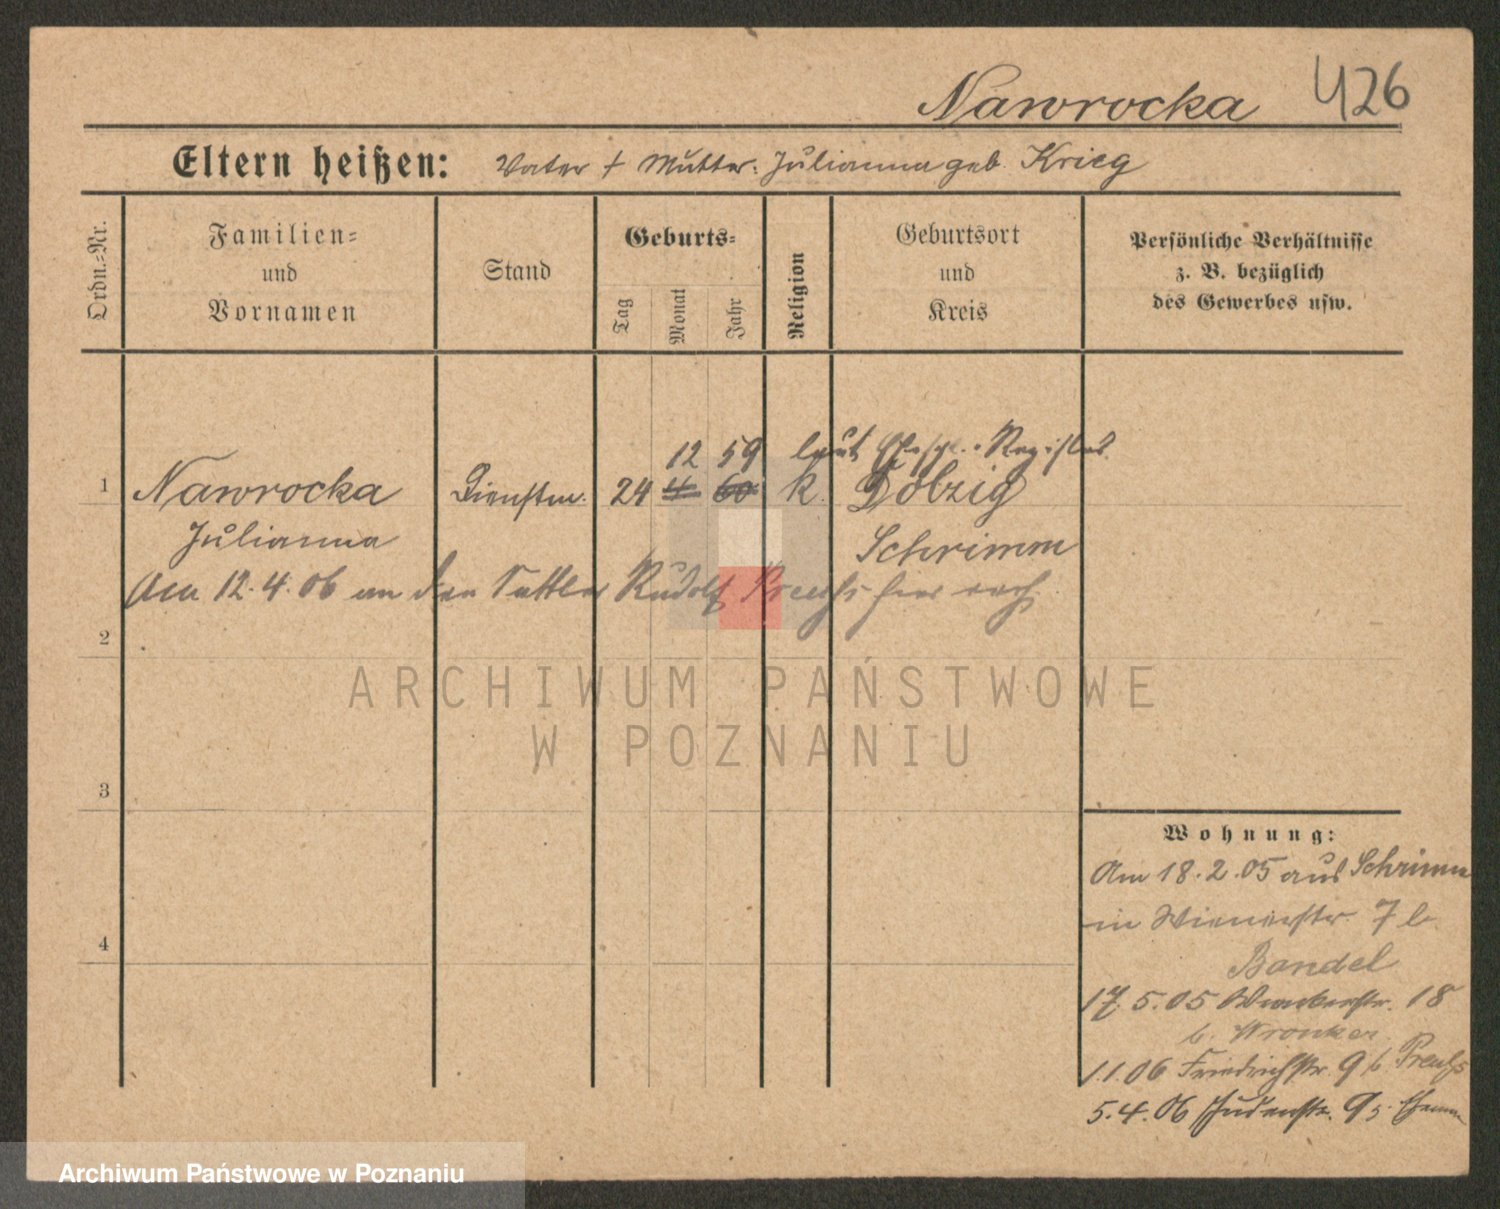 Nawrocka 426
Eltern heißen: Vater † Mutter: Julianna geb. Krieg
Ordn.=Nr.
Familien=
und
Vornamen
Stand
Geburts=
Tag
Monat
Jahr
Religion
Geburtsort
und
Kreis
Persönliche Verhältnisse
z. B. bezüglich
des Gewerbes usw.
12 59 laut Register
1 Nawrocka Dienstm. 24 4 60 k. Dolzig
Julianna Schrimm
Am 12.4.06 an den Sattler Rudolf Preuß hier verh.
2
ARCHIWUM PAŃSTWOWE
W POZNANIU
3
4
Wohnung:
Am 18.2.05 aus Schrimm
in Wienerstr. 7 b
Bandel
17.5.05 18
b. Wronker
1.1.06 Friedrichstr. 9 b. Preuß
5.4.06 Judenstr. 9
Archiwum Państwowe w Poznaniu